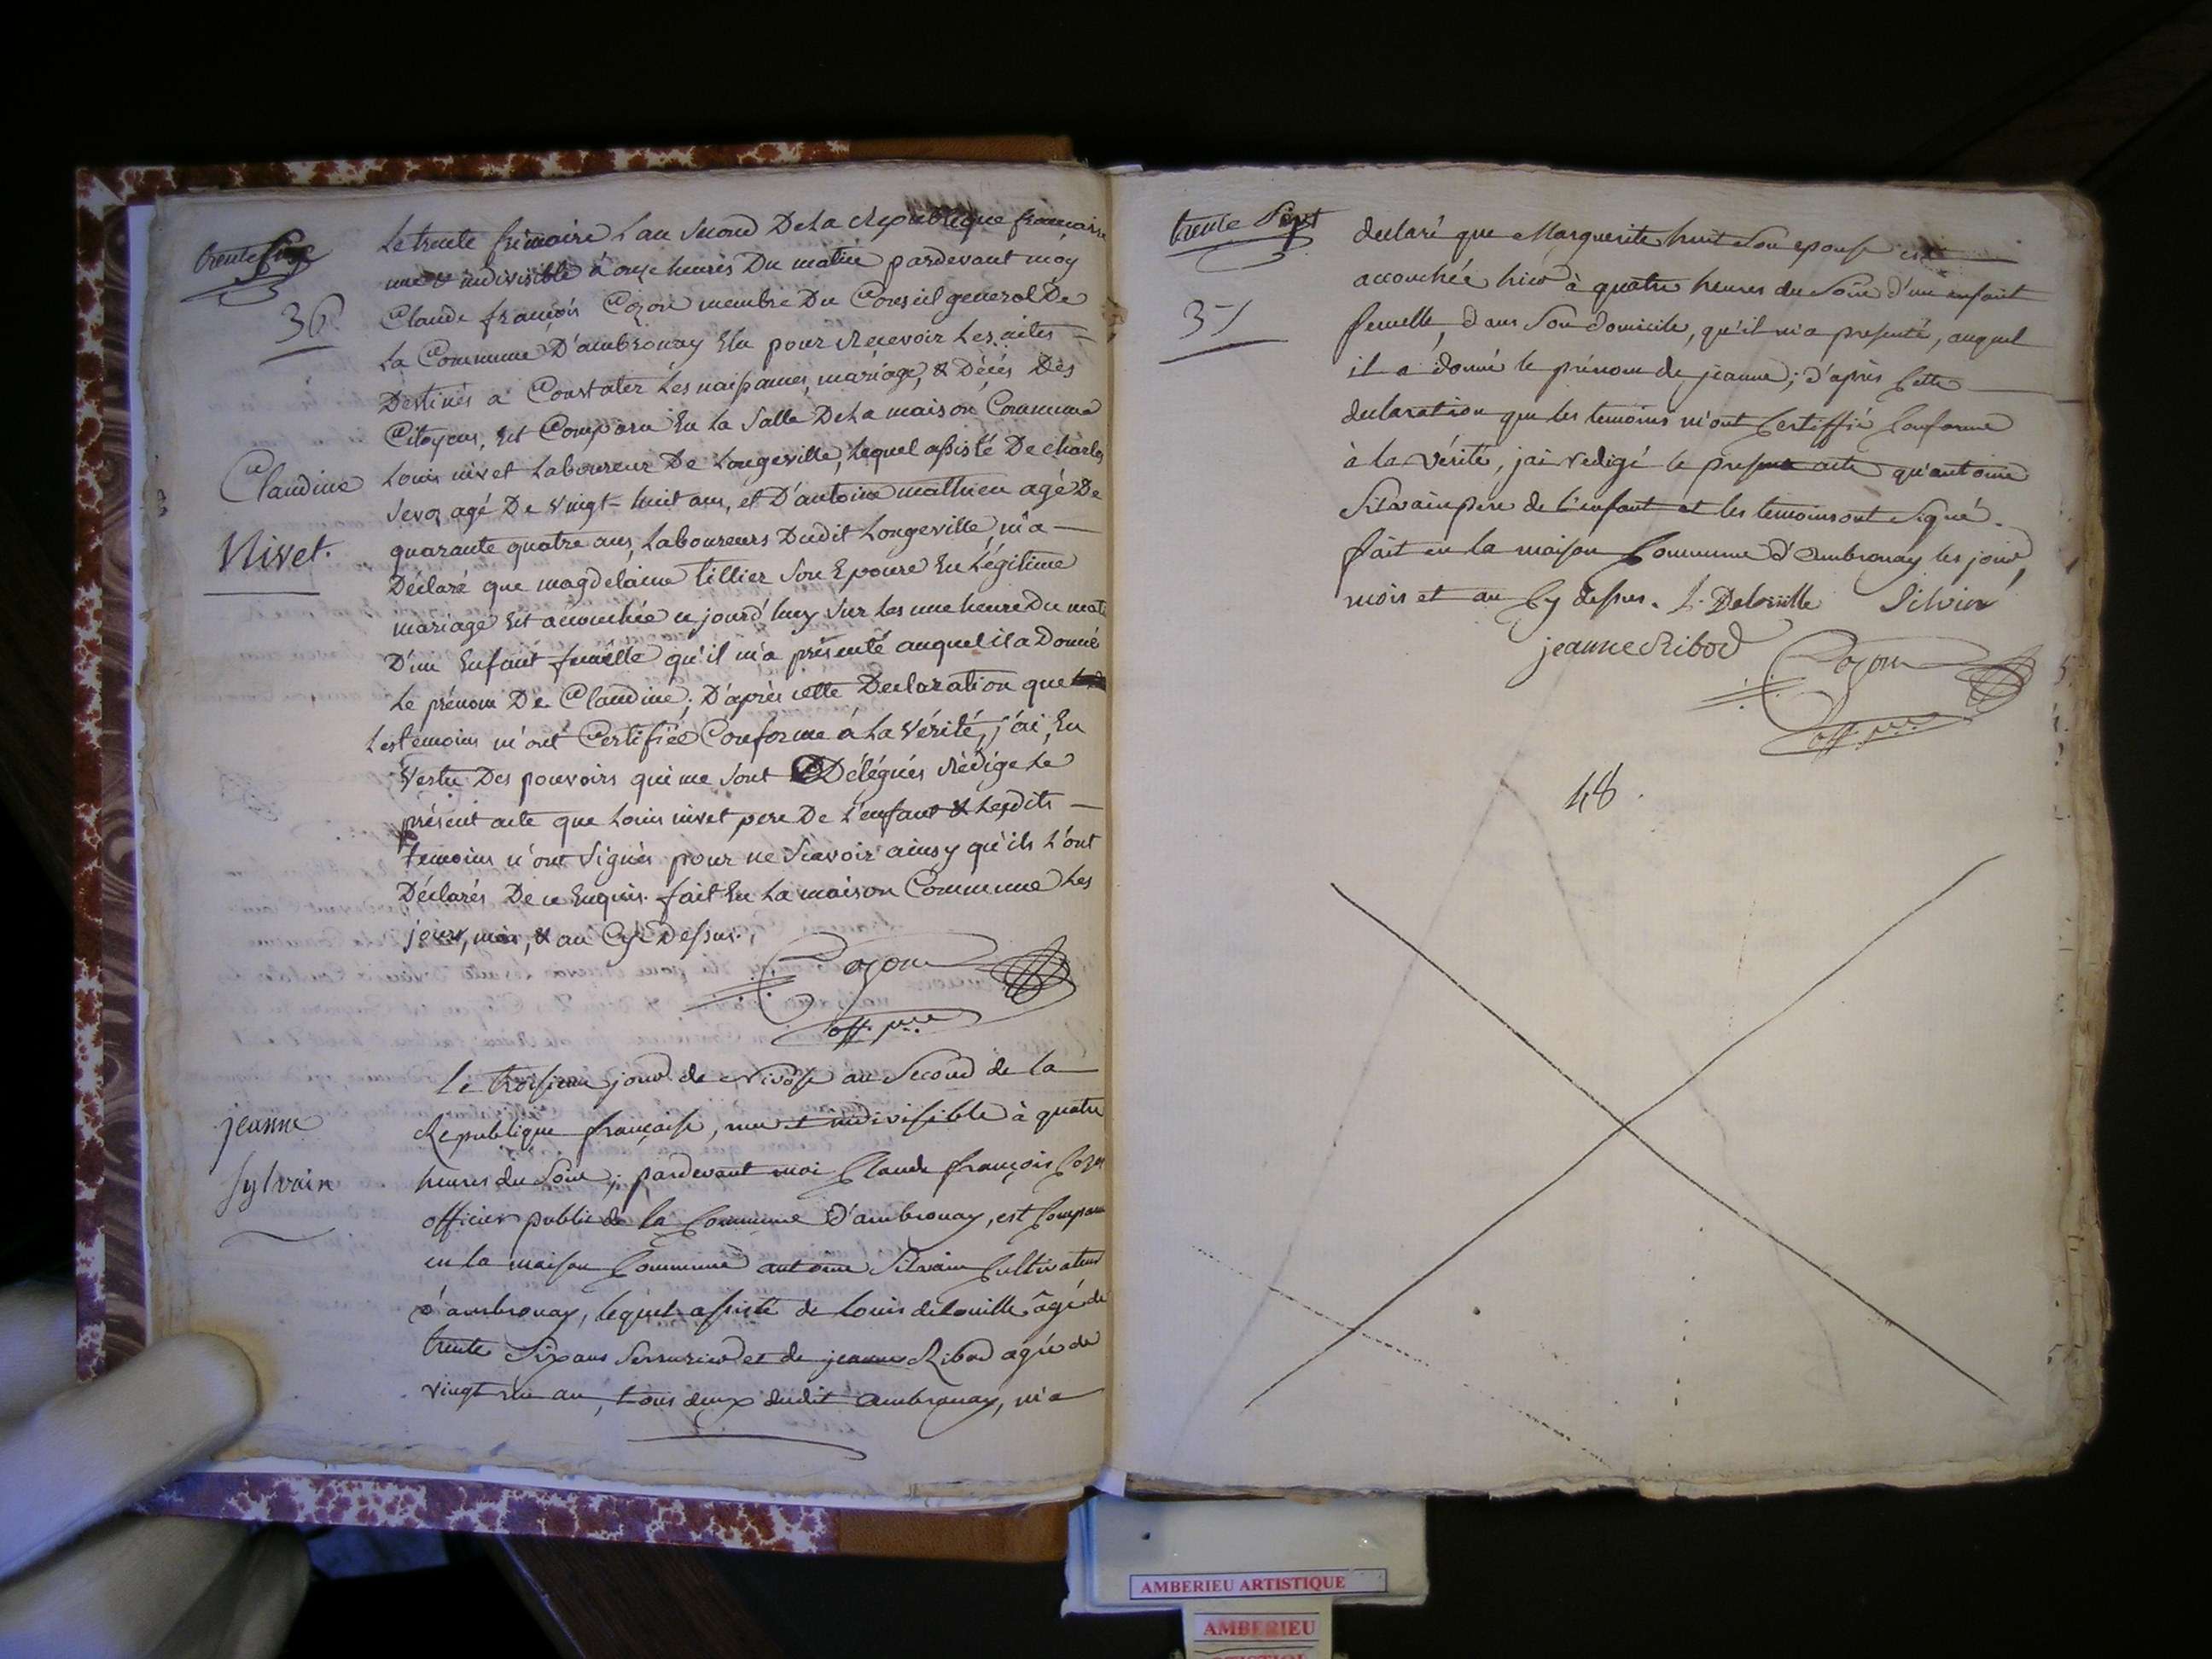 trente six
36
Claudine
Nivet.
Le trente frimaire L'an Second De La Republique francaise
une & indivisible à onze heures Du matin pardevant moy
Claude françois Cozon membre Du Conseil general De
La Commune D'ambronay Elu pour Recevoir Les actes
Destinés a Constater Les naissances, mariage, & Décés Des
Citoyens, Est Comparu En La Salle De La maison Commune
Louis nivet Laboureur De Longeville, Lequel assisté De charles
agé De Vingt-huit ans, et D'antoine mathieu agé De
quarante quatre ans, Laboureurs Dudit Longeville, m'a
Déclaré que magdelaine tillier Son Epouse En Légitime
mariage Est accouchée cejourd'huy Sur Les une heure Du matin
D'un Enfant femelle qu'il m'a présenté auquel il a Donné
Le prénom De Claudine; D'après cette Declaration que
Les témoins m'ont Certifiée Conforme à La Vérité, j'ai, En
Vertu Des pouvoirs qui me Sont Délégués Rédigé Le
présent acte que Louis nivet pere De L'enfant & Lesdits
temoins n'ont Signés pour ne Scavoir ainsy qu'ils L'ont
Déclarés De ce Enquis. fait En La maison Commune Les
jour, mois, & an Cy-Dessus.
Cozon
off. p.
jeanne
Sylvain
Le troisieme jour de Nivôse an Second de la
Republique française, une et indivisible à quatre
heures du Soir; pardevant moi Claude françois Cozon
officier public de la Commune d'ambronay, est Comparu
en la maison Commune antoine Silvain Cultivateur
d'ambronay, lequel assisté de Louis delouille âgé de
trente Six ans Serrurier et de jeanne Ribod agée de
vingt un an, tous deux dudit ambronay, m'a
trente Sept
37
declaré que Marguerite huit Son epouse est
accouchée hier à quatre heures du Soir d'un enfant
femelle, dans Son domicile, qu'il m'a presenté, auquel
il a donné le prénom de jeanne; d'après Cette
declaration que les temoins m'ont Certiffié Conforme
à la vérité, j'ai redigé le present acte qu'antoine
Silvain pere de l'enfant et les temoins ont Signé.
fait en la maison Commune d'Ambronay les jour,
mois et an Cy dessus. L. Delouille Silvin
jeanne Ribod
Cozon
off. p.
48.
AMBERIEU ARTISTIQUE
AMBERIEU